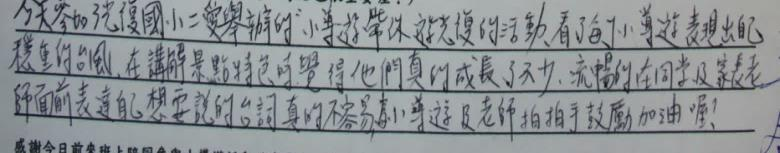 今天參加了光復國小二愛舉辦的"小導遊帶你遊光復的活動,看了每個小導遊表現出自己
穩重的台風,在講解景點特色時覺得他們真的成長了不少,流暢的在同學及家長老
師面前表達自己想要說的台詞真的不容易,為小導遊及老師拍拍手鼓勵加油喔!
感謝今日前來班上陪同